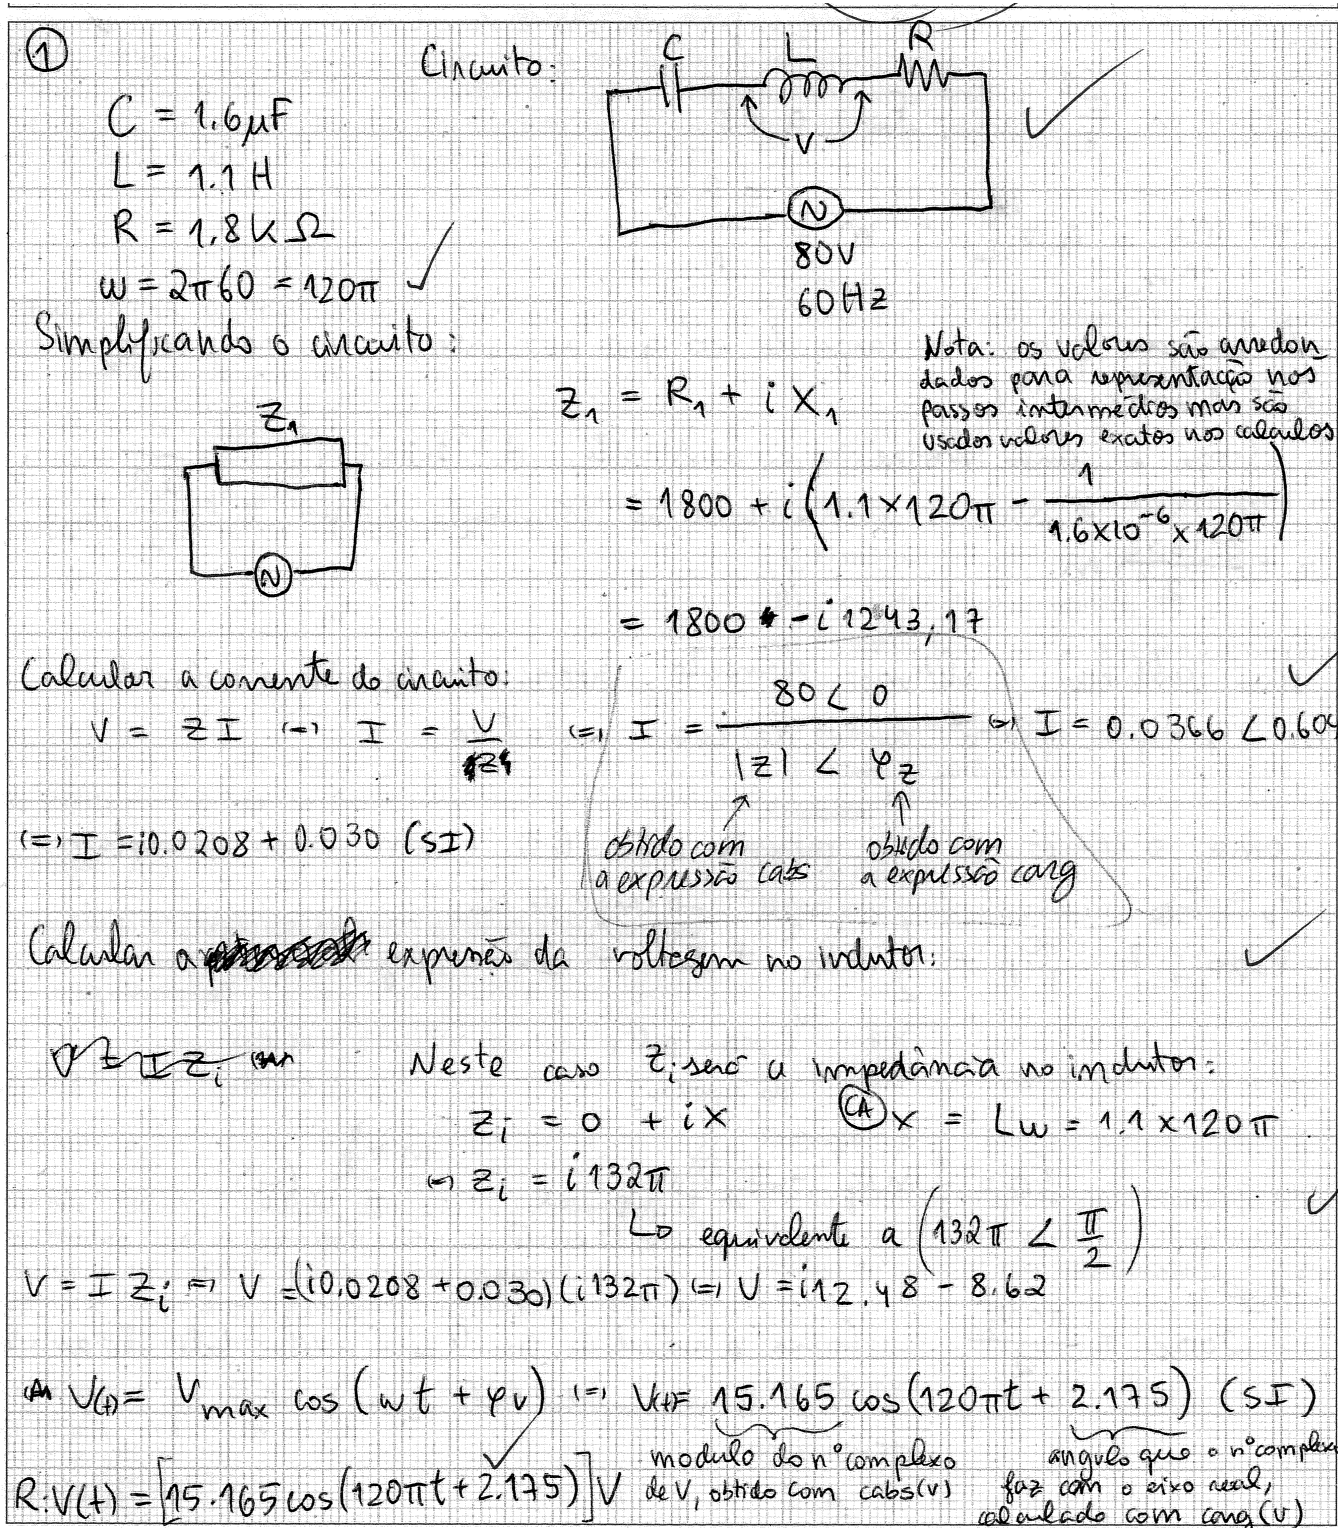 1
Circuito:
C L R
C = 1.6μF
V
L = 1.1 H
R = 1,8 k Ω
80V
w = 2π60 = 120π
60Hz
Simplificando o circuito:
Nota: os valores são arredon
dados para representação nos
passos intermédios mas são
usados valores exatos nos calculos
Z₁
Z₁ = R₁ + i X₁
= 1800 + i (1.1×120π - 1/(1.6×10⁻⁶×120π))
N
= 1800 - i 1243,17
Calcular a corrente do circuito:
V = ZI (=) I = V/Z (=) I = (80 ∠ 0)/(|Z| ∠ φz) (=) I = 0.0366 ∠ 0.604
obtido com a expressão cabs
obtido com a expressão carg
(=) I = i0.0208 + 0.030 (SI)
Calcular a expressão da voltagem no indutor:
Neste caso Zi será a impedância no indutor:
Zi = 0 + iX (CA) X = Lw = 1.1 × 120π
(=) Zi = i 132π
↳ equivalente a (132π ∠ π/2)
V = I Zi (=) V = (i0.0208 + 0.030)(i132π) (=) V = i12.48 - 8.62
V(t) = Vmax cos (wt + φv) (=) V(t) = 15.165 cos(120πt + 2.175) (SI)
modulo do nº complexo
de V, obtido com cabs(v)
angulo que o nº complexo
faz com o eixo real,
calculado com carg(v)
R: V(t) = [15.165 cos(120πt + 2.175)] V